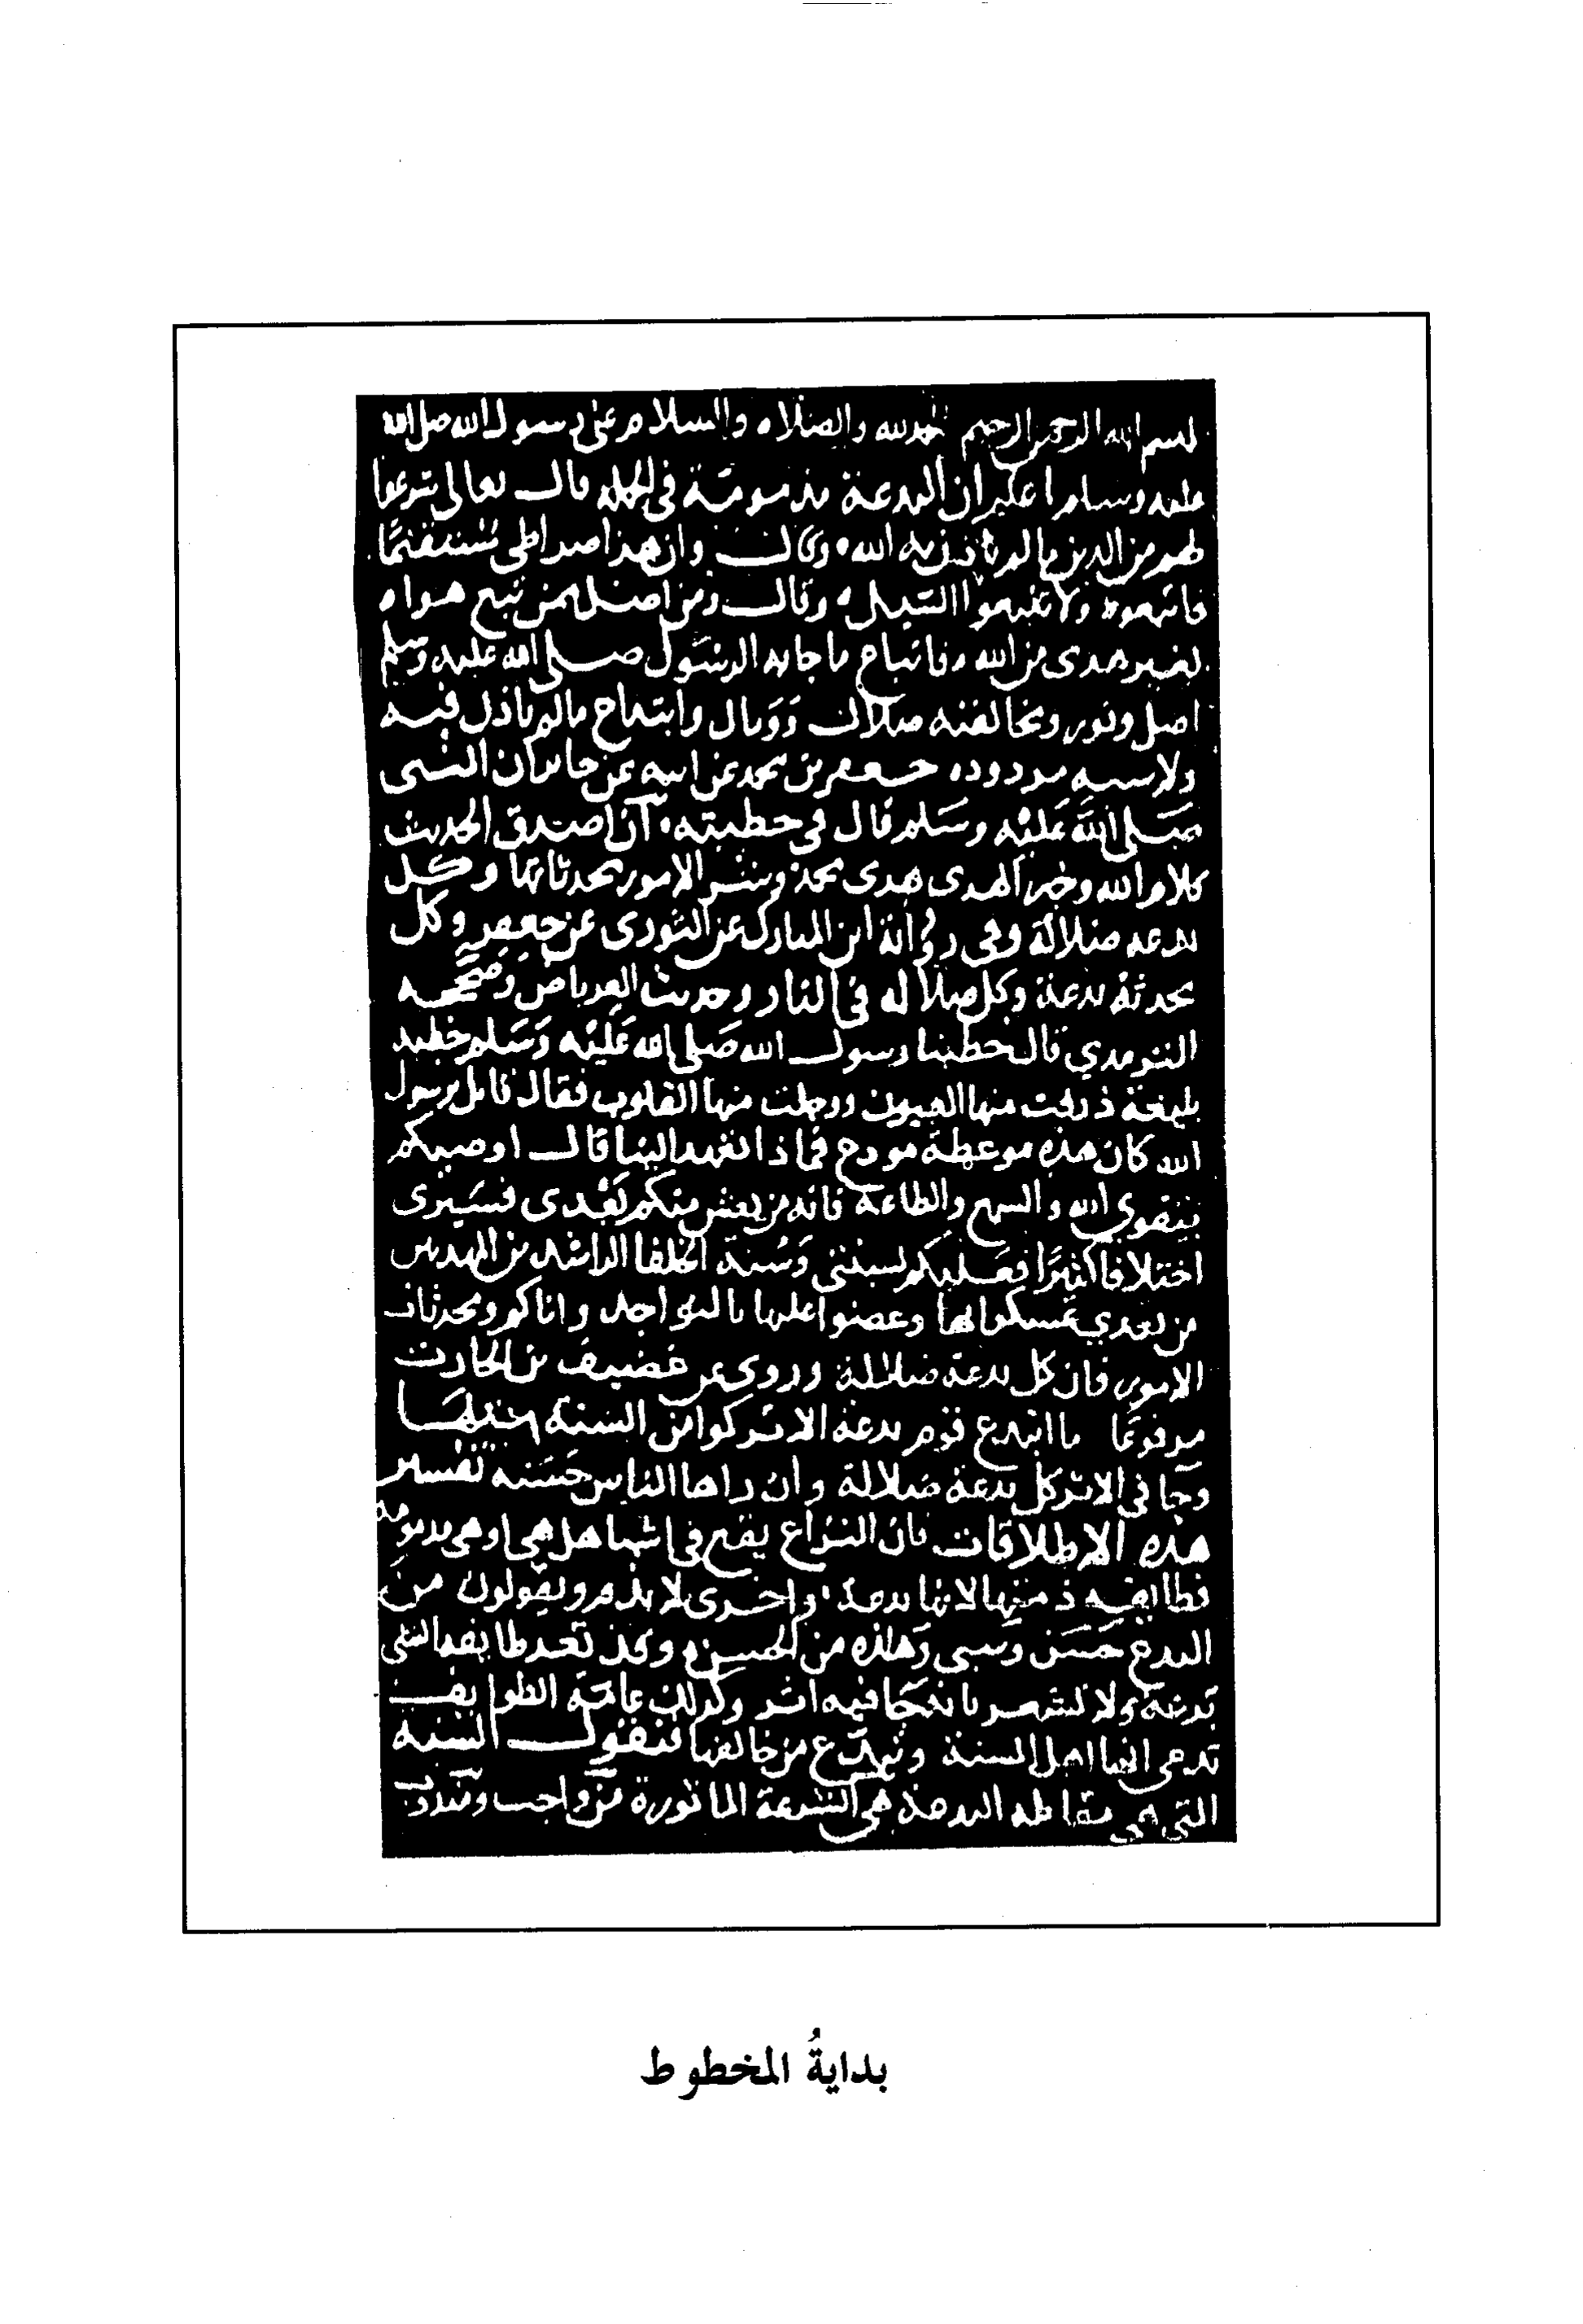 بسم الله الرحمن الرحيم الحمد لله والصلاة والسلام على رسول الله صلى الله
عليه وسلم اعلم ان البدعة مذمومة في الجملة قال تعالى شرعوا
لهم من الدين ما لم ياذن به الله وقال وان هذا صراطي مستقيما
فاتبعوه ولا تتبعوا السبل وقال ومن اضل ممن اتبع هواه
بغير هدى من الله فاتباع ما جا به الرسول صلى الله عليه وسلم
اصل ونور ومخالفته ضلال ووبال وابتداع ما لم ياذن فيه
ولا سببه مردود جعفر بن محمد عن ابيه عن جابر ان النبي
صلى الله عليه وسلم قال في خطبته ان اصدق الحديث
كلام الله وخير الهدى هدى محمد وشر الامور محدثاتها وكل
بدعه ضلالة وفي رواية ابن المبارك عن الثوري عن جعفر وكل
محدثة بدعة وكل ضلالة في النار وحديث العرباض وصححه
الترمذي قال خطبنا رسول الله صلى الله عليه وسلم خطبه
بليغة ذرفت منها العيون ووجلت منها القلوب فقال قايل يرسول
الله كان هذه موعظة مودع فماذا تعهد الينا قال اوصيكم
بتقوى الله والسمع والطاعة فانه من يعش منكم بعدى فسيرى
اختلافا كثيرا فعليكم بسنتي وسنة الخلفا الراشدين المهديين
من بعدي تمسكوا بها وعضوا عليها بالنواجد واياكم ومحدثات
الامور فان كل بدعة ضلالة وروى عن غضيف بن الحارث
مرفوعا ما ابتدع قوم بدعة الا تركوا من السنة مثلها
وجا في الاثر كل بدعة ضلالة وان راها الناس حسنه تفسير
هذه الاطلاقات فان النزاع يقع في اشيا هل هي او هى مذمومه
فطايفه ذمتها لانها بدعة واخرى لا تذم ويقولون من
البدع حسن وسيى وهذه من الحسنة وقد تعد طايفة الشى
بدعة ولا تشعر بانه جا فيه اثر وكذلك عامة الطوايف
تدعى انها اهل السنة وتبدع من خالفها فنقول السنة
التي هي مقابله البدعة هي الشرعة الماثورة من واجب ومندوب
بدايةُ المخطوط